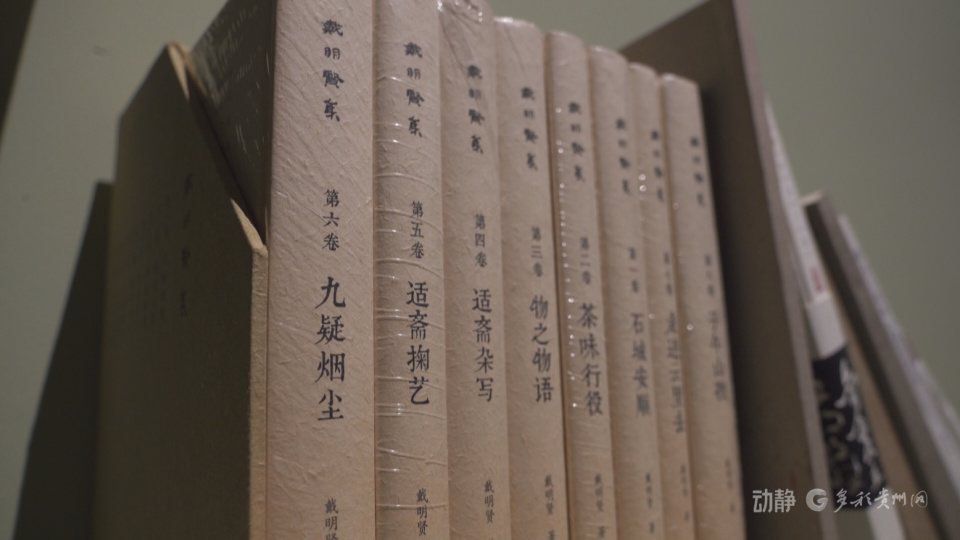 戴明贤集
第六卷
九疑烟尘
戴明贤
戴明贤集
第五卷
适斋掬艺
戴明贤
戴明贤集
第四卷
适斋杂写
戴明贤
戴明贤集
第三卷
物之物语
戴明贤 著
戴明贤集
第二卷
茶味行役
戴明贤 著
戴明贤集
第一卷
石城安顺
戴明贤 著
戴明贤集
戴明贤集
子午山孩
动静 多彩贵州网